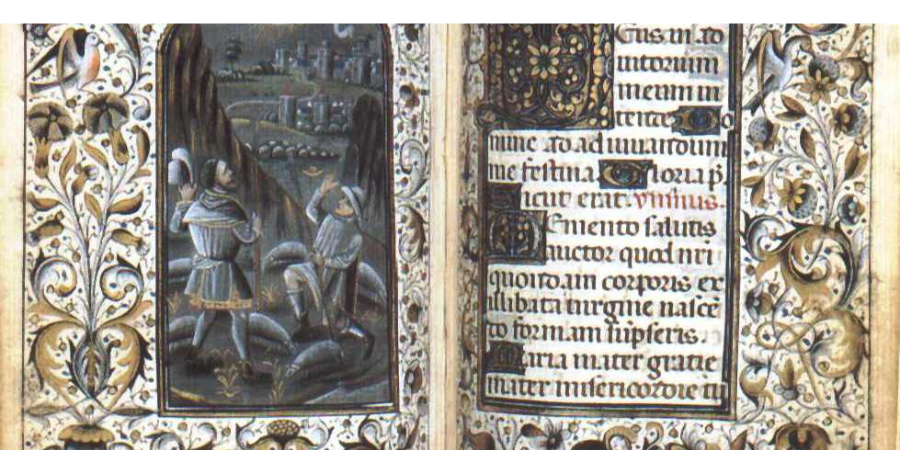 Deus in ad
iutorium
meum in
tende Do
mine ad adiuuandum
me festina Gloria p
Sicut erat. ymnus.
Memento salutis
auctor quod nri
quondam corporis ex
illibata uirgine nascē
do formam sūpseris.
Maria mater gratie
mater misericordie tu